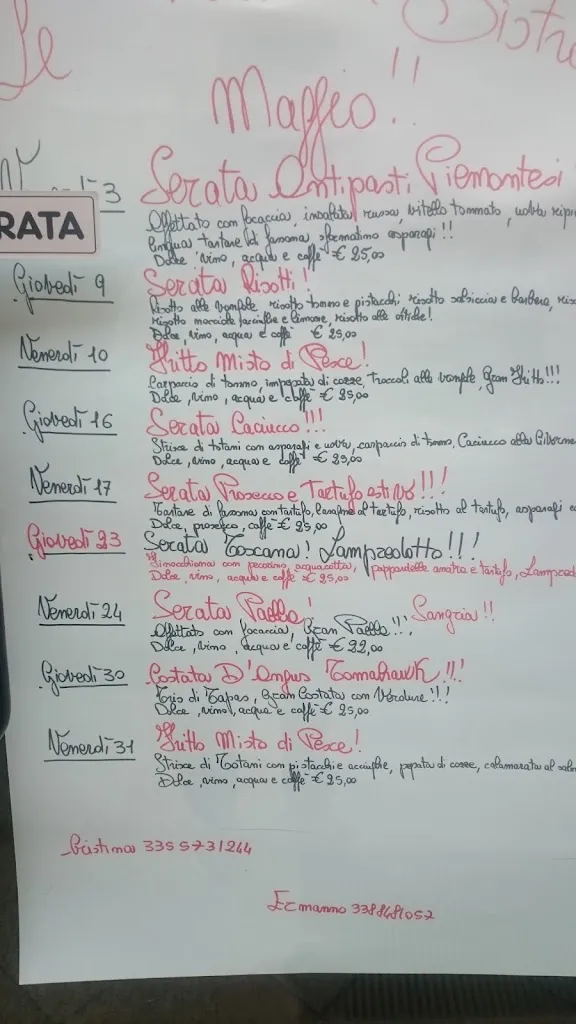 Le Bistr
Maggio!!
3 Serata Antipasti Piemontesi
RATA
Affettato con focaccia, insalata russa, vitello tonnato, uova ripi
lingua tartare di fassona sformatino asparagi!!
Dolce, vino, acqua e caffè € 25,00
Giovedì 9 Serata Risotti!
Risotto alle vongole risotto tonno e pistacchi, risotto salsiccia e barbera, ris
risotto nocciole acciughe e limone, risotto alle ortiche!
Dolce, vino, acqua e caffè € 25,00
Venerdì 10 Fritto Misto di Pesce!
Carpaccio di tonno, impepata di cozze, Troccoli alle vongole, Gran Fritto!!!
Dolce, vino, acqua e caffè € 25,00
Giovedì 16 Serata Caciucco!!!
Strisce di totani con asparagi e uova, carpaccio di tonno, Caciucco alla Livorne
Dolce, vino, acqua e caffè € 29,00
Venerdì 17 Serata Prosecco e Tartufo estivo!!!
Tartare di fassona con tartufo, lasagne al tartufo, risotto al tartufo, asparagi e
Dolce, prosecco, caffè € 25,00
Giovedì 23 Serata Toscana! Lampredotto!!!
Finocchiona con pecorino, acquacotta, pappardelle anatra e tartufo, Lampred
Dolce, vino, acqua e caffè € 25,00
Venerdì 24 Serata Paella! Sangria!!
Affettato con focaccia, Gran Paella!!!
Dolce, vino, acqua e caffè € 22,00
Giovedì 30 Costata D'Angus Tomahawk!!!
Tris di Tapas, Gran Costata con Verdure!!!
Dolce, vino, acqua e caffè € 25,00
Venerdì 31 Fritto Misto di Pesce!
Strisce di Totani con pistacchi e acciughe, pepata di cozze, calamarata al salm
Dolce, vino, acqua e caffè € 25,00
Cristina 3355731244
Ermanno 3388481052